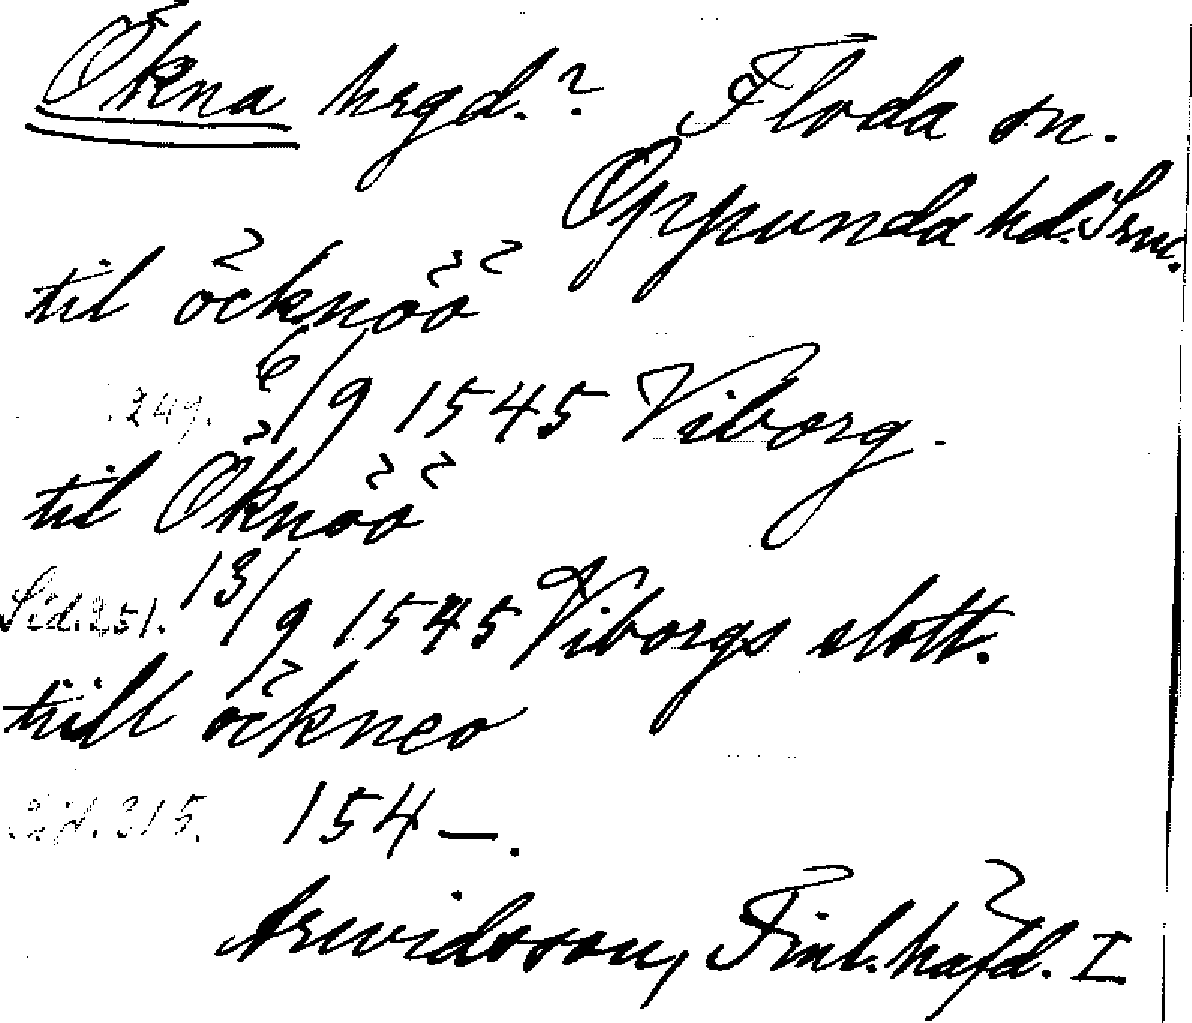 Ökna hrgd.? Floda sn.
Oppunda hd. Srm.
til öcknöö
249. 6/9 1545 Viborg.
til Öknöö
Sid. 251. 13/9 1545 Viborgs slott.
till öckneo
Sid. 315. 154—.
Arwidsson, Finl. häfd. I